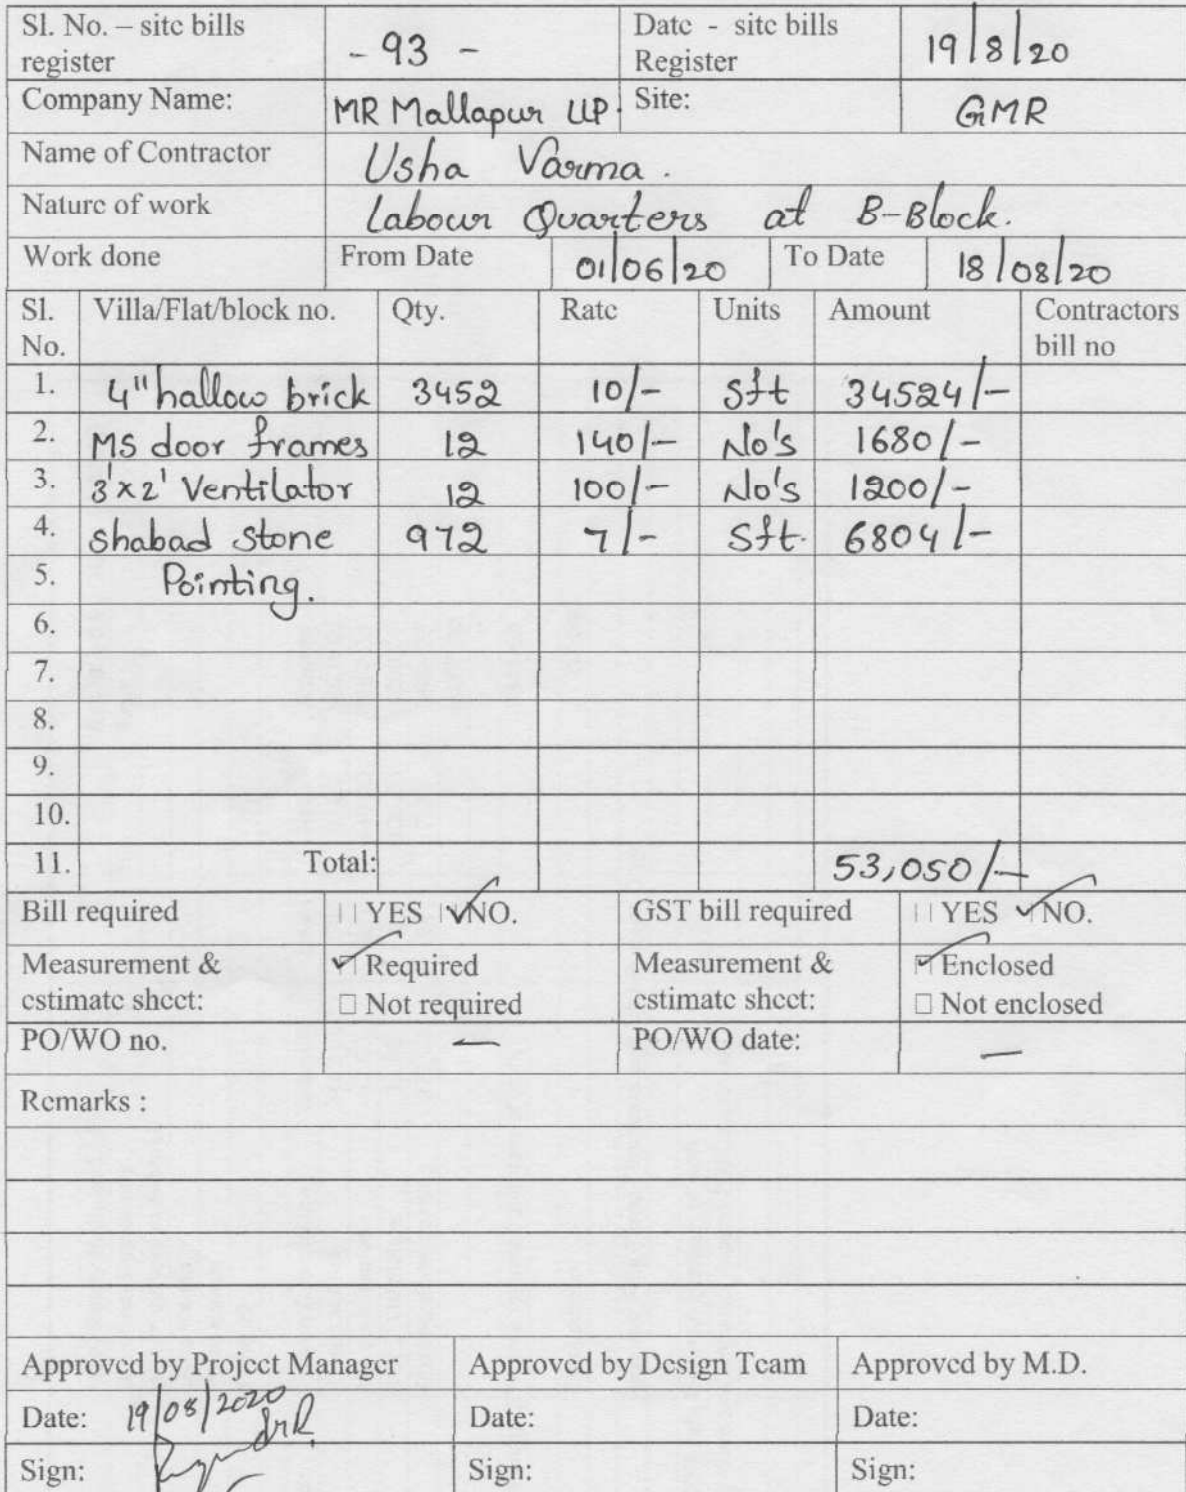 Sl. No. – site bills register - 93 - Date - site bills Register 19/8/20
Company Name: MR Mallapur LLP. Site: GMR
Name of Contractor Usha Varma.
Nature of work Labour Quarters at B-Block.
Work done From Date 01/06/20 To Date 18/08/20
Sl. No. Villa/Flat/block no. Qty. Rate Units Amount Contractors bill no
1. 4" hallow brick 3452 10/- Sft 34524/-
2. MS door frames 12 140/- No's 1680/-
3. 3'x2' Ventilator 12 100/- No's 1200/-
4. Shabad Stone 972 7/- Sft. 6804/-
5. Pointing.
6.
7.
8.
9.
10.
11. Total: 53,050/-
Bill required YES NO. GST bill required YES NO.
Measurement & estimate sheet: Required Not required Measurement & estimate sheet: Enclosed Not enclosed
PO/WO no. — PO/WO date: —
Remarks :
Approved by Project Manager Approved by Design Team Approved by M.D.
Date: 19/08/2020 Date: Date:
Sign: Sign: Sign: